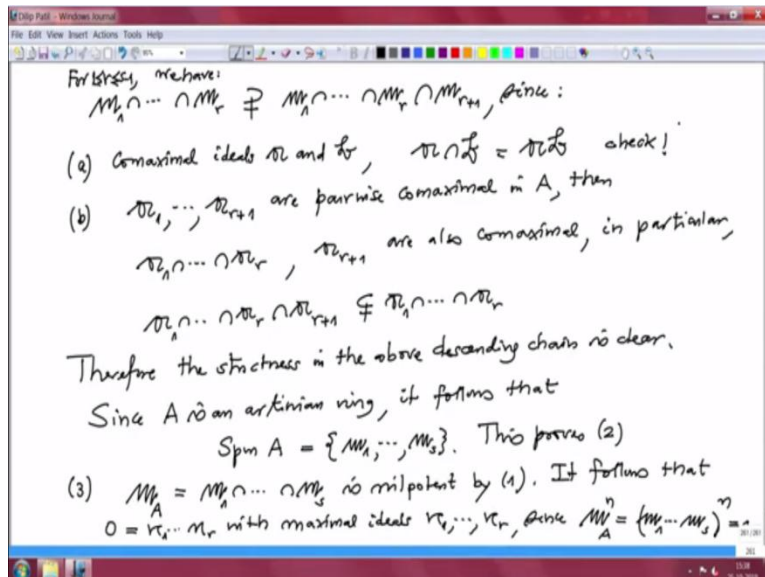 Dilip Patil - Windows Journal
File Edit View Insert Actions Tools Help
For 1≤r≤s, we have:
𝔪₁∩⋯∩𝔪ᵣ ⊋ 𝔪₁∩⋯∩𝔪ᵣ∩𝔪ᵣ₊₁, since:
(a) Comaximal ideals 𝔞 and 𝔟, 𝔞∩𝔟 = 𝔞𝔟 check!
(b) 𝔞₁,⋯,𝔞ᵣ₊₁ are pairwise comaximal in A, then
𝔞₁∩⋯∩𝔞ᵣ, 𝔞ᵣ₊₁ are also comaximal, in particular,
𝔞₁∩⋯∩𝔞ᵣ∩𝔞ᵣ₊₁ ⊊ 𝔞₁∩⋯∩𝔞ᵣ
Therefore the strictness in the above descending chain is clear.
Since A is an artinian ring, it follows that
Spm A = {𝔪₁,⋯,𝔪ₛ}. This proves (2)
(3) 𝔪_A = 𝔪₁∩⋯∩𝔪ₛ is nilpotent by (1). It follows that
0 = 𝔫₁⋯𝔫ᵣ with maximal ideals 𝔫₁,⋯,𝔫ᵣ, since 𝔪_Aⁿ = (𝔪₁⋯𝔪ₛ)ⁿ =
261/261
261
15:38